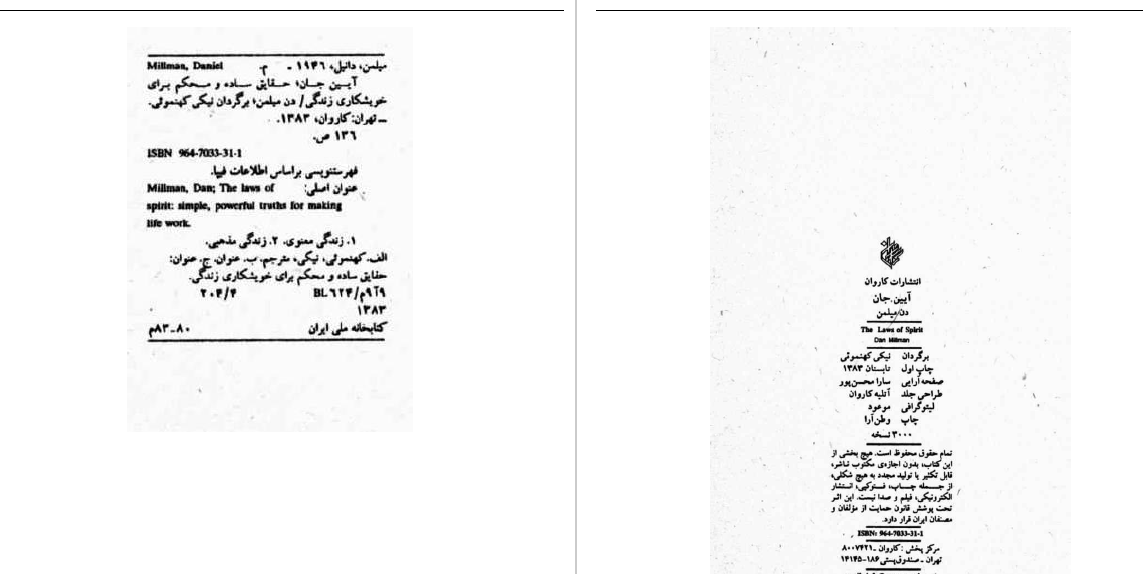 میلمن، دانیل، ۱۹۴۶ - م. Millman, Daniel
آیین جان: حقایق ساده و محکم برای
خویشکاری زندگی/ دن میلمن؛ برگردان نیکی کهنموئی.
ـ تهران: کاروان، ۱۳۸۳.
۱۳۶ ص.
ISBN 964-7033-31-1
فهرستنویسی براساس اطلاعات فیپا.
عنوان اصلی: Millman, Dan; The laws of
spirit: simple, powerful truths for making
life work.
۱. زندگی معنوی. ۲. زندگی مذهبی.
الف. کهنموئی، نیکی، مترجم. ب. عنوان. ج. عنوان:
حقایق ساده و محکم برای خویشکاری زندگی.
۲۰۴/۴ BL۶۲۴/م۹آ۹
۱۳۸۳
کتابخانه ملی ایران ۸۰ـ۸۳م
انتشارات کاروان
آیین جان
دن میلمن
The Laws of Spirit
Dan Millman
برگردان نیکی کهنموئی
چاپ اول تابستان ۱۳۸۳
صفحه‌آرایی سارا محسن‌پور
طراحی جلد آتلیه کاروان
لیتوگرافی موعود
چاپ وطن‌آرا
۳۰۰۰ نسخه
تمام حقوق محفوظ است. هیچ بخشی از
این کتاب، بدون اجازه‌ی مکتوب ناشر،
قابل تکثیر یا تولید مجدد به هیچ شکلی،
از جمله چاپ، فتوکپی، انتشار
الکترونیکی، فیلم و صدا نیست. این اثر
تحت پوشش قانون حمایت از مؤلفان و
مصنفان ایران قرار دارد.
ISBN: 964-7033-31-1
مرکز پخش: کاروان ـ ۸۰۰۷۴۲۱
تهران ـ صندوق‌پستی ۱۸۶-۱۴۱۴۵